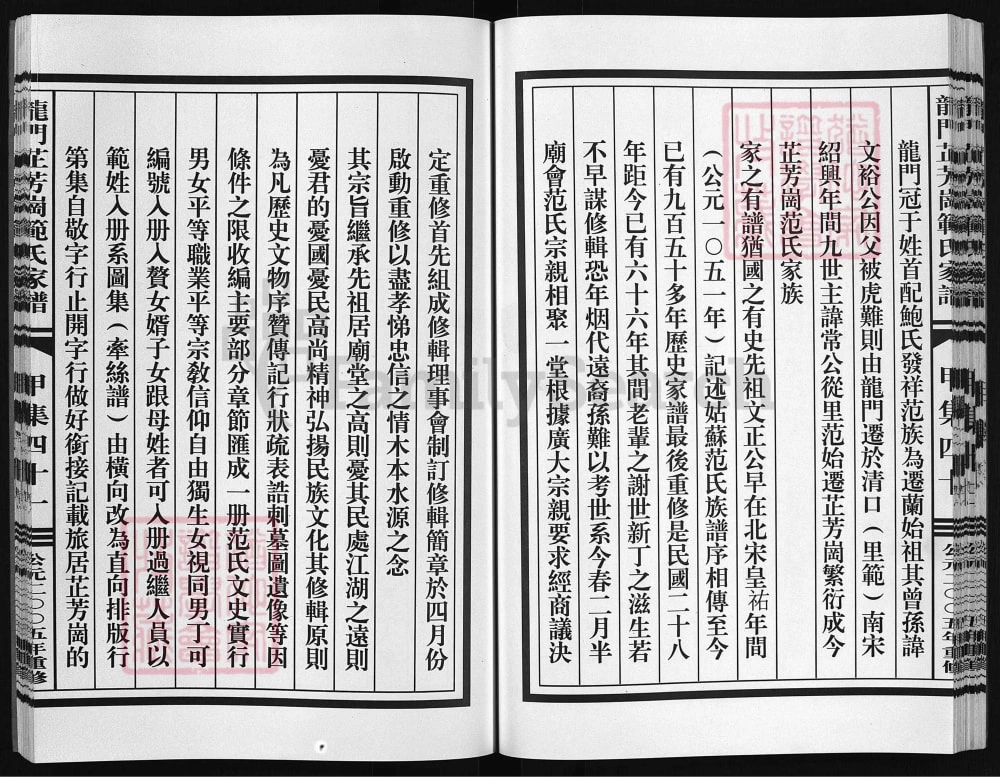 龍門芷芳崗範氏家譜
甲集四十
公元二〇〇五年重修
龍門冠于姓首配鮑氏發祥范族為遷蘭始祖其曾孫諱
文裕公因父被虎難則由龍門遷於清口（里範）南宋
紹興年間九世主諱常公從里范始遷芷芳崗繁衍成今
芷芳崗范氏家族
家之有譜猶國之有史先祖文正公早在北宋皇祐年間
（公元一〇五一年）記述姑蘇范氏族譜序相傳至今
已有九百五十多年歷史家譜最後重修是民國二十八
年距今已有六十六年其間老輩之謝世新丁之滋生若
不早謀修輯恐年烟代遠裔孫難以考世系今春二月半
廟會范氏宗親相聚一堂根據廣大宗親要求經商議決
定重修首先組成修輯理事會制訂修輯簡章於四月份
啟動重修以盡孝悌忠信之情木本水源之念
其宗旨繼承先祖居廟堂之高則憂其民處江湖之遠則
憂君的憂國憂民高尚精神弘揚民族文化其修輯原則
為凡歷史文物序贊傳記行狀疏表誥刺墓圖遺像等因
條件之限收編主要部分章節匯成一册范氏文史實行
男女平等職業平等宗敎信仰自由獨生女視同男丁可
編號入册入贅女婿子女跟母姓者可入册過繼人員以
範姓入册系圖集（牽絲譜）由橫向改為直向排版行
第集自敬字行止開字行做好銜接記載旅居芷芳崗的
龍門芷芳崗範氏家譜
甲集四十一
公元二〇〇五年重修
FamilySearch